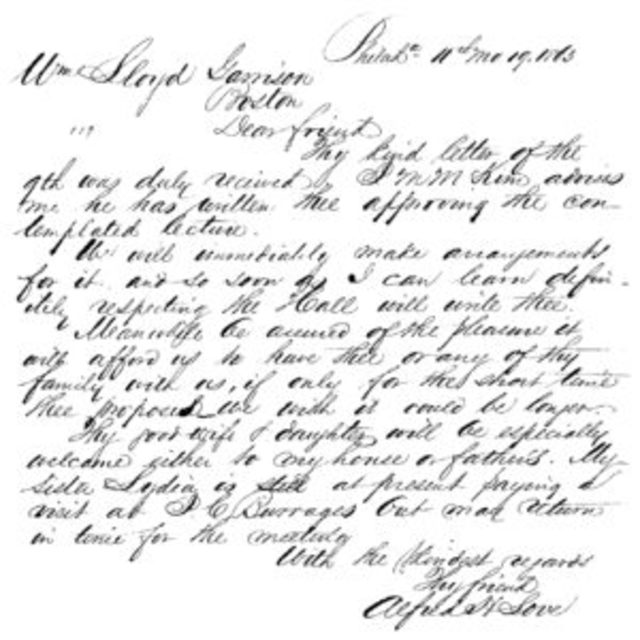 Philada 11th mo 19. 1863
Wm Lloyd Garrison
Boston
Dear friend
Thy kind letter of the
9th was duly received J M McKim advises
me he has written thee approving the con-
templated lecture.
We will immediately make arrangements
for it and so soon as I can learn defin-
itely respecting the Hall will write thee.
Meanwhile be assured of the pleasure it
will afford us to have thee or any of thy
family with us, if only for the short time
thee proposed we wish it could be longer.
Thy good wife & daughter will be especially
welcome either to my house or fathers. My
sister Lydia is still at present paying a
visit at Burrages but may return
in time for the meeting
With the kindest regards
Thy friend
Alfred H Love